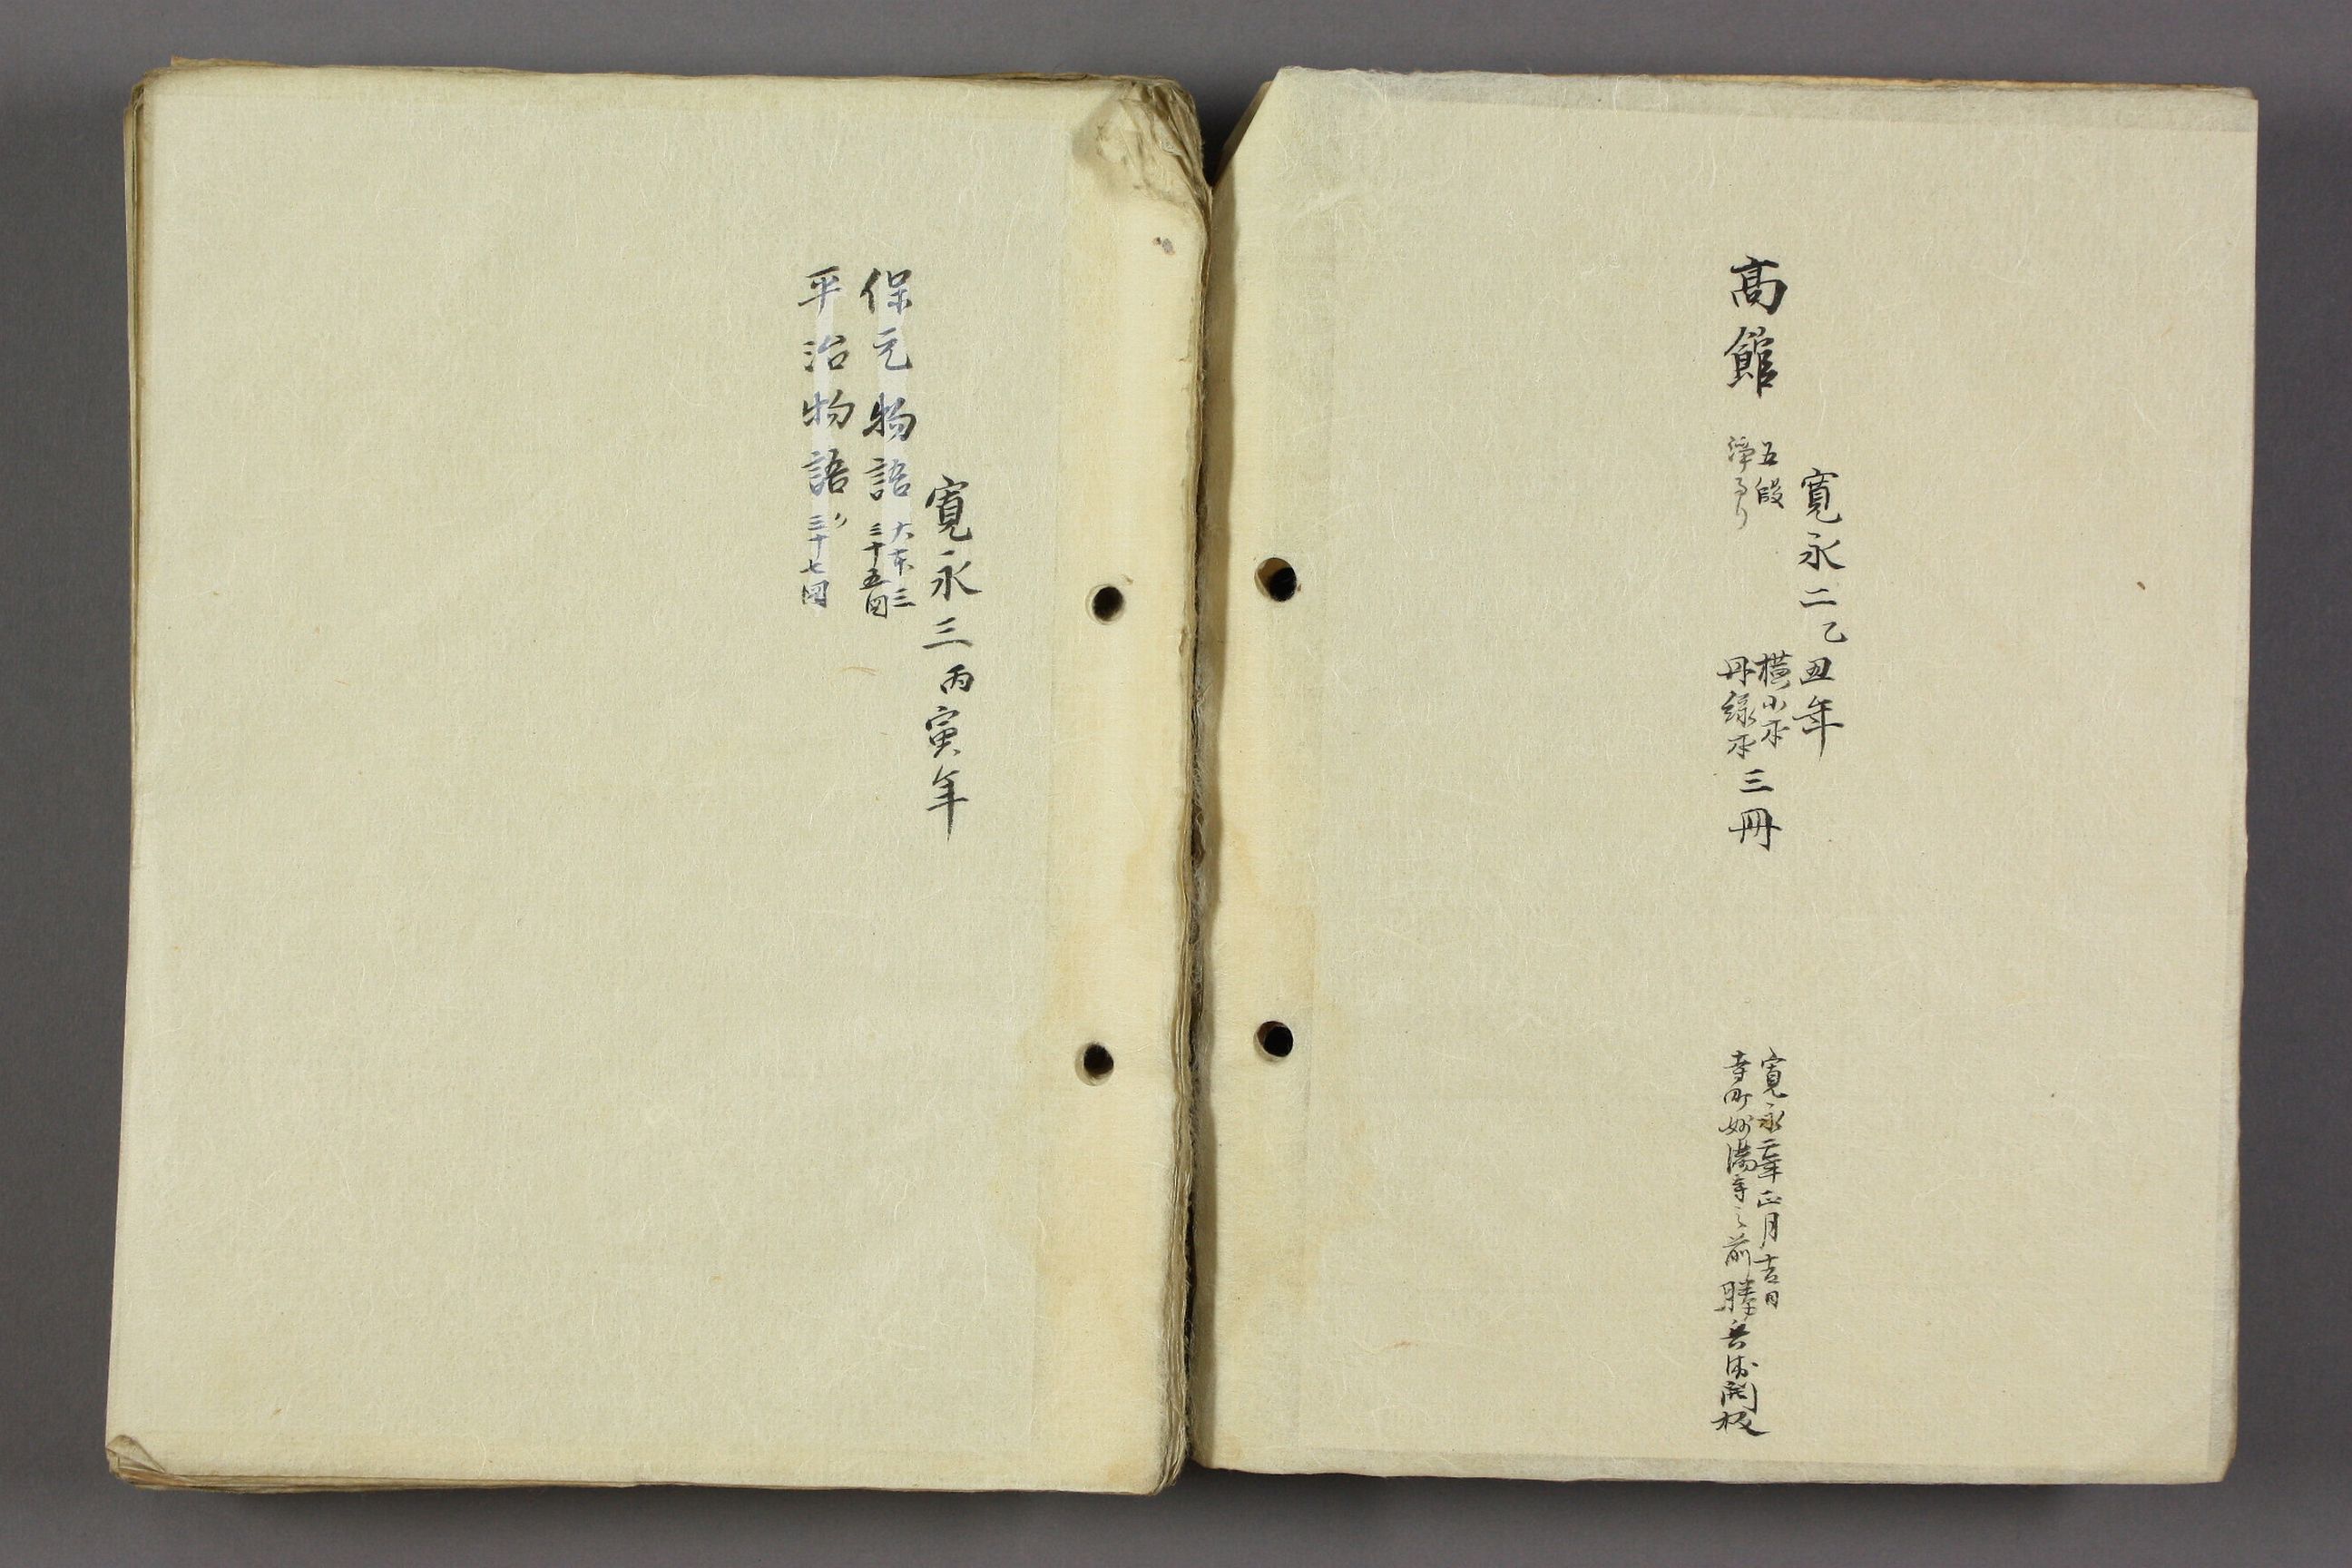 寛永二乙丑年
高館 五段 浄るり 横小本 丹緑本 三冊
寛永二年正月吉日
寺町妙満寺之前 勝兵衛開板
寛永三丙寅年
保元物語 大本三 三十五図
平治物語 〃 三十七図